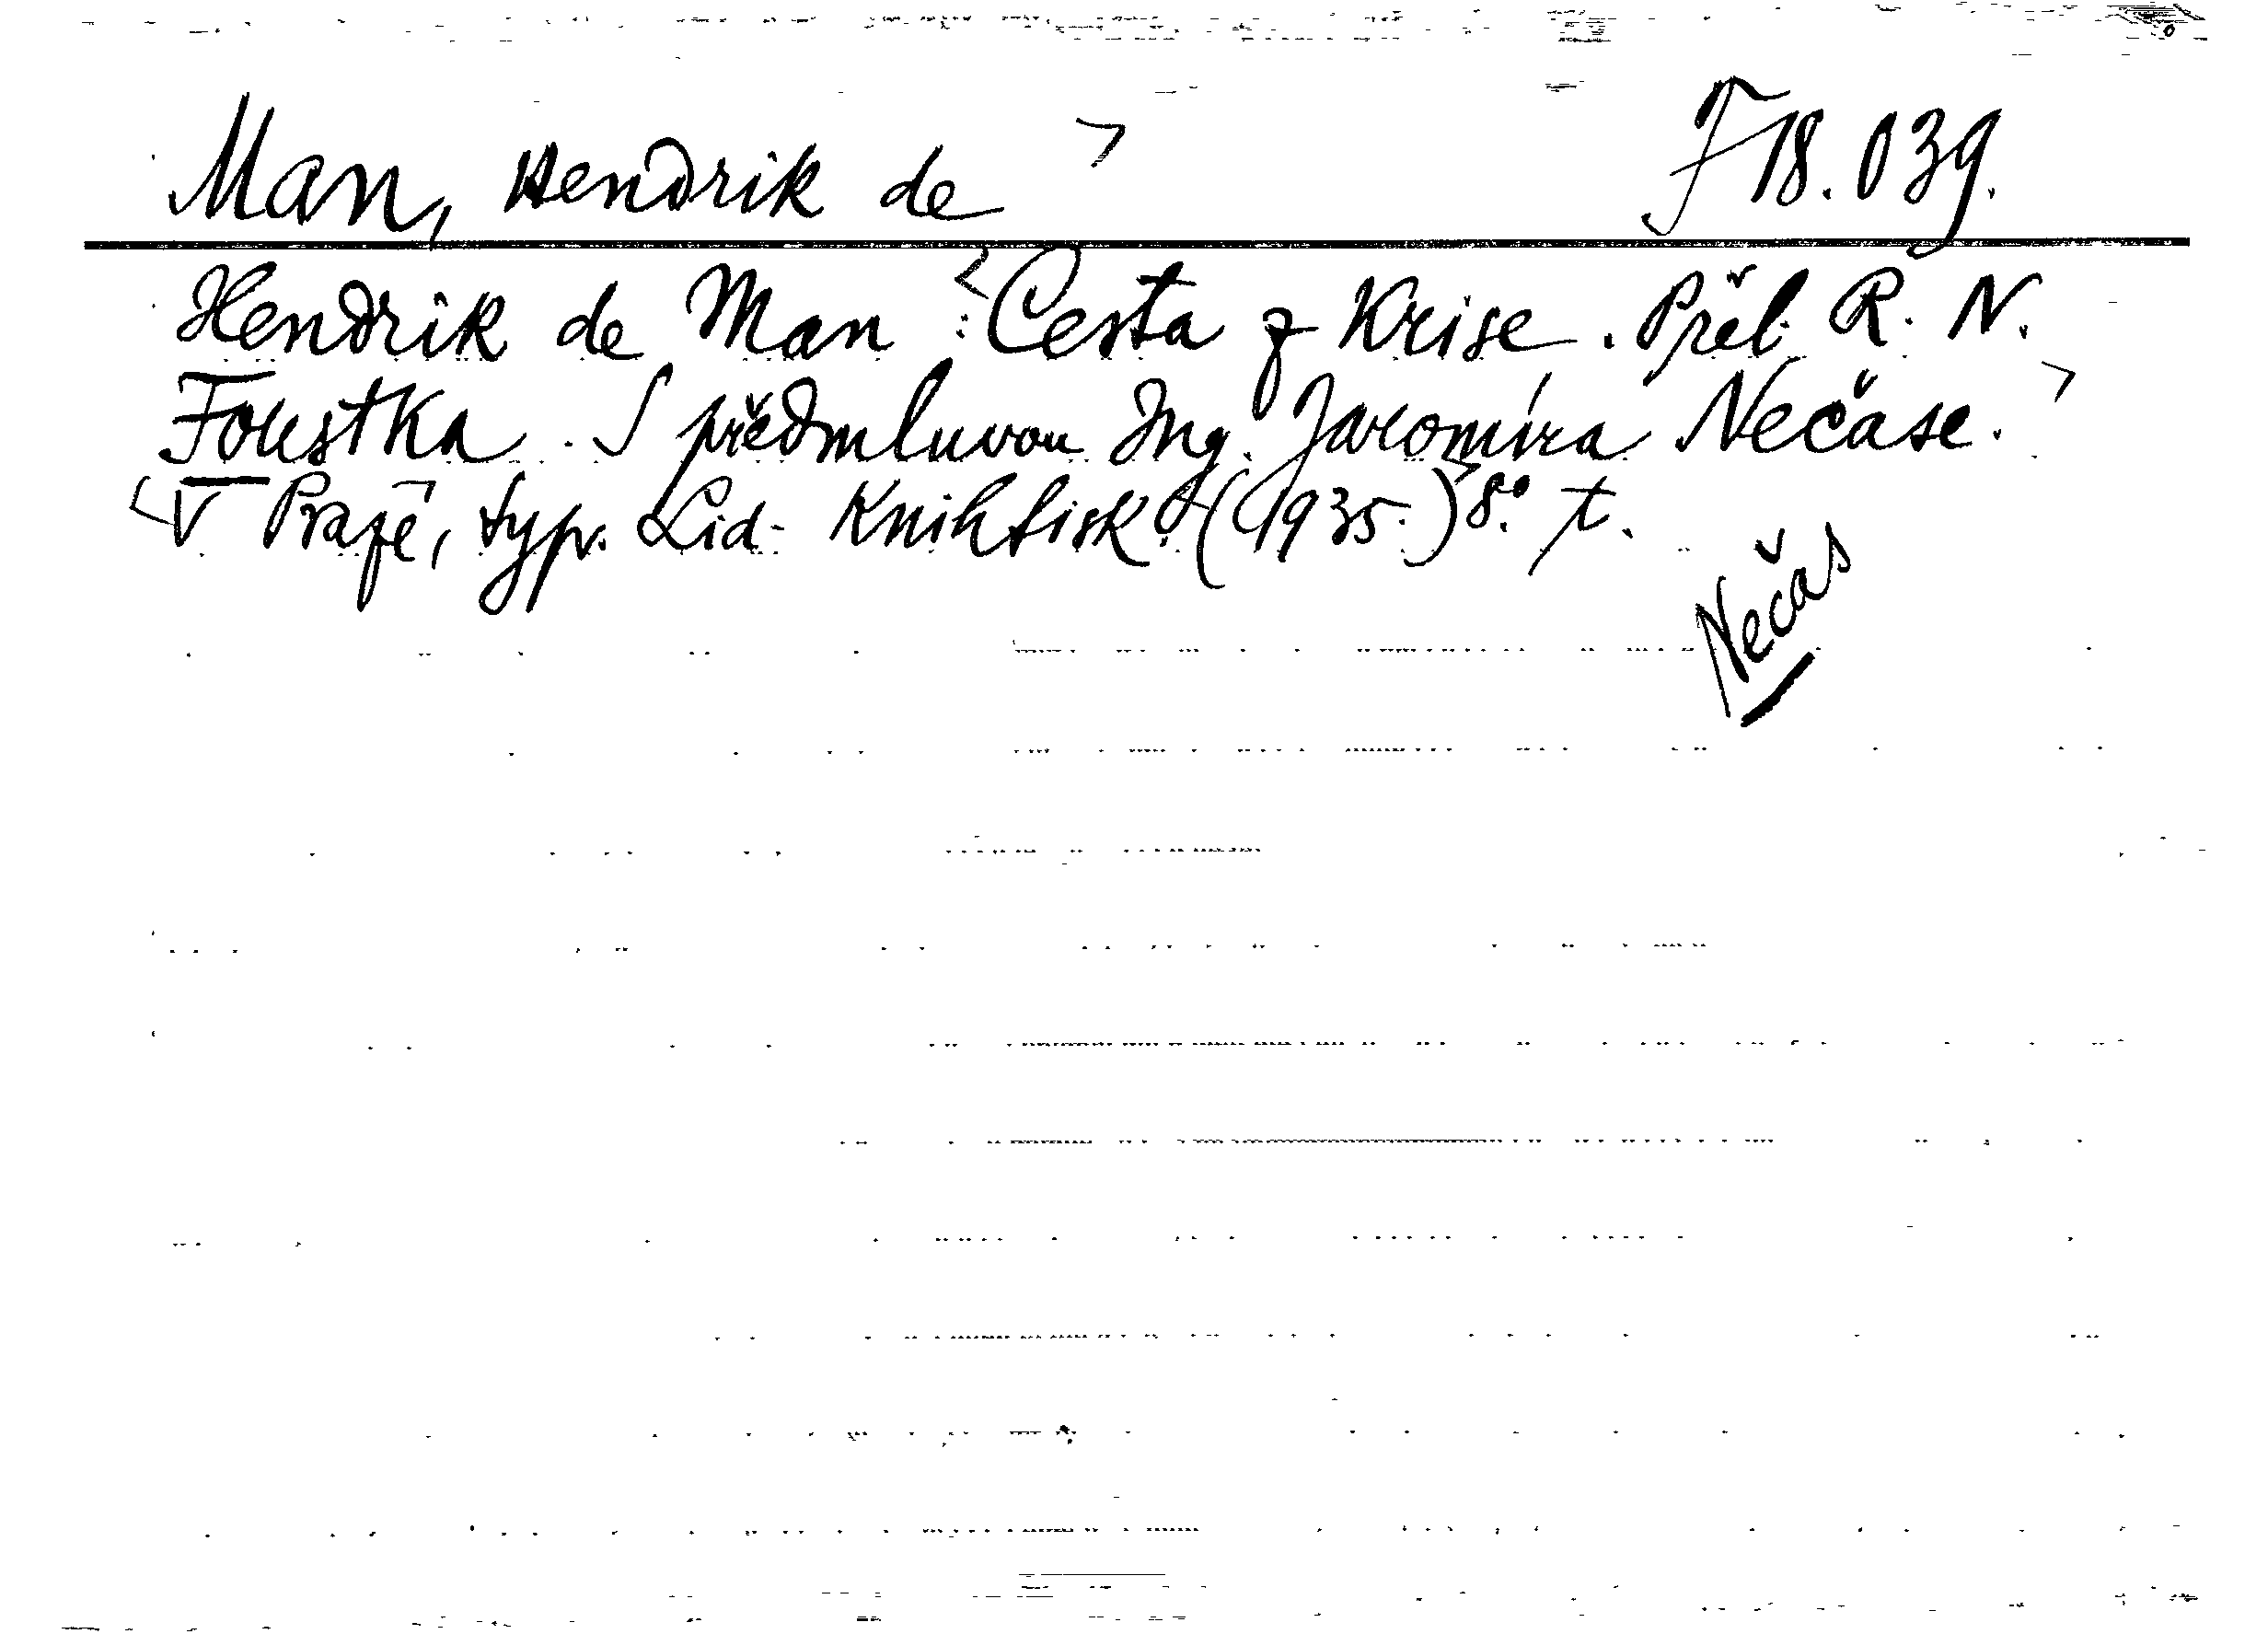 Man, Hendrik de > F 18.039.
Hendrik de Man : <Cesta z krise. Přel. R. N.
Foustka. S předmluvou Ing. Jaromíra Nečase. >
<V Praze, typ. Lid. knihtisk. (1935.)> 8° t.
Nečas